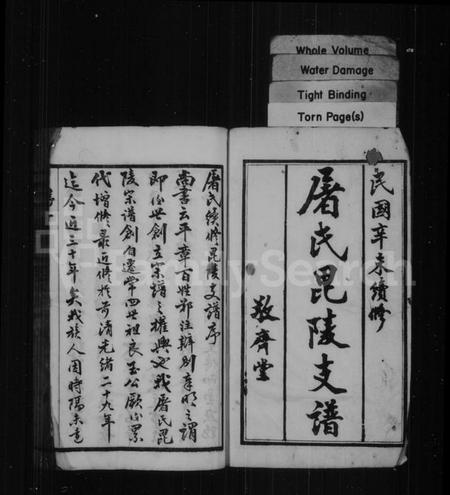 Whole Volume
Water Damage
Tight Binding
Torn Page(s)
民國辛未續修
屠氏毘陵支譜
敬齊堂
屠氏續修毘陵支譜序
尚書云平章百姓鄭注辨別章明之謂
即後世創立宗譜之權輿也我屠氏毘
陵宗譜創自遷常四世祖良玉公厥後累
代增修最近修於前清光緒二十九年
迄今近三十年矣我族人因時陽未竟
FamilySearch